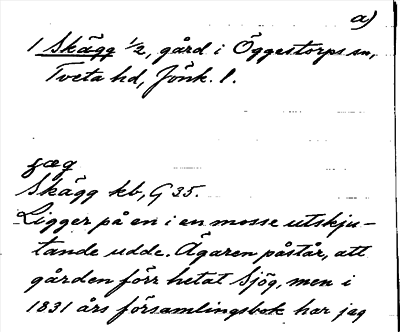 a)
1 Skägg 1/2, gård i Öggestorps sn,
Tveta hd, Jönk. l.
ʃæg
Skägg kb, G 35.
Ligger på en i en mosse utskju-
tande udde. Ägaren påstår, att
gården förr hetat Sjög, men i
1831 års församlingsbok har jag